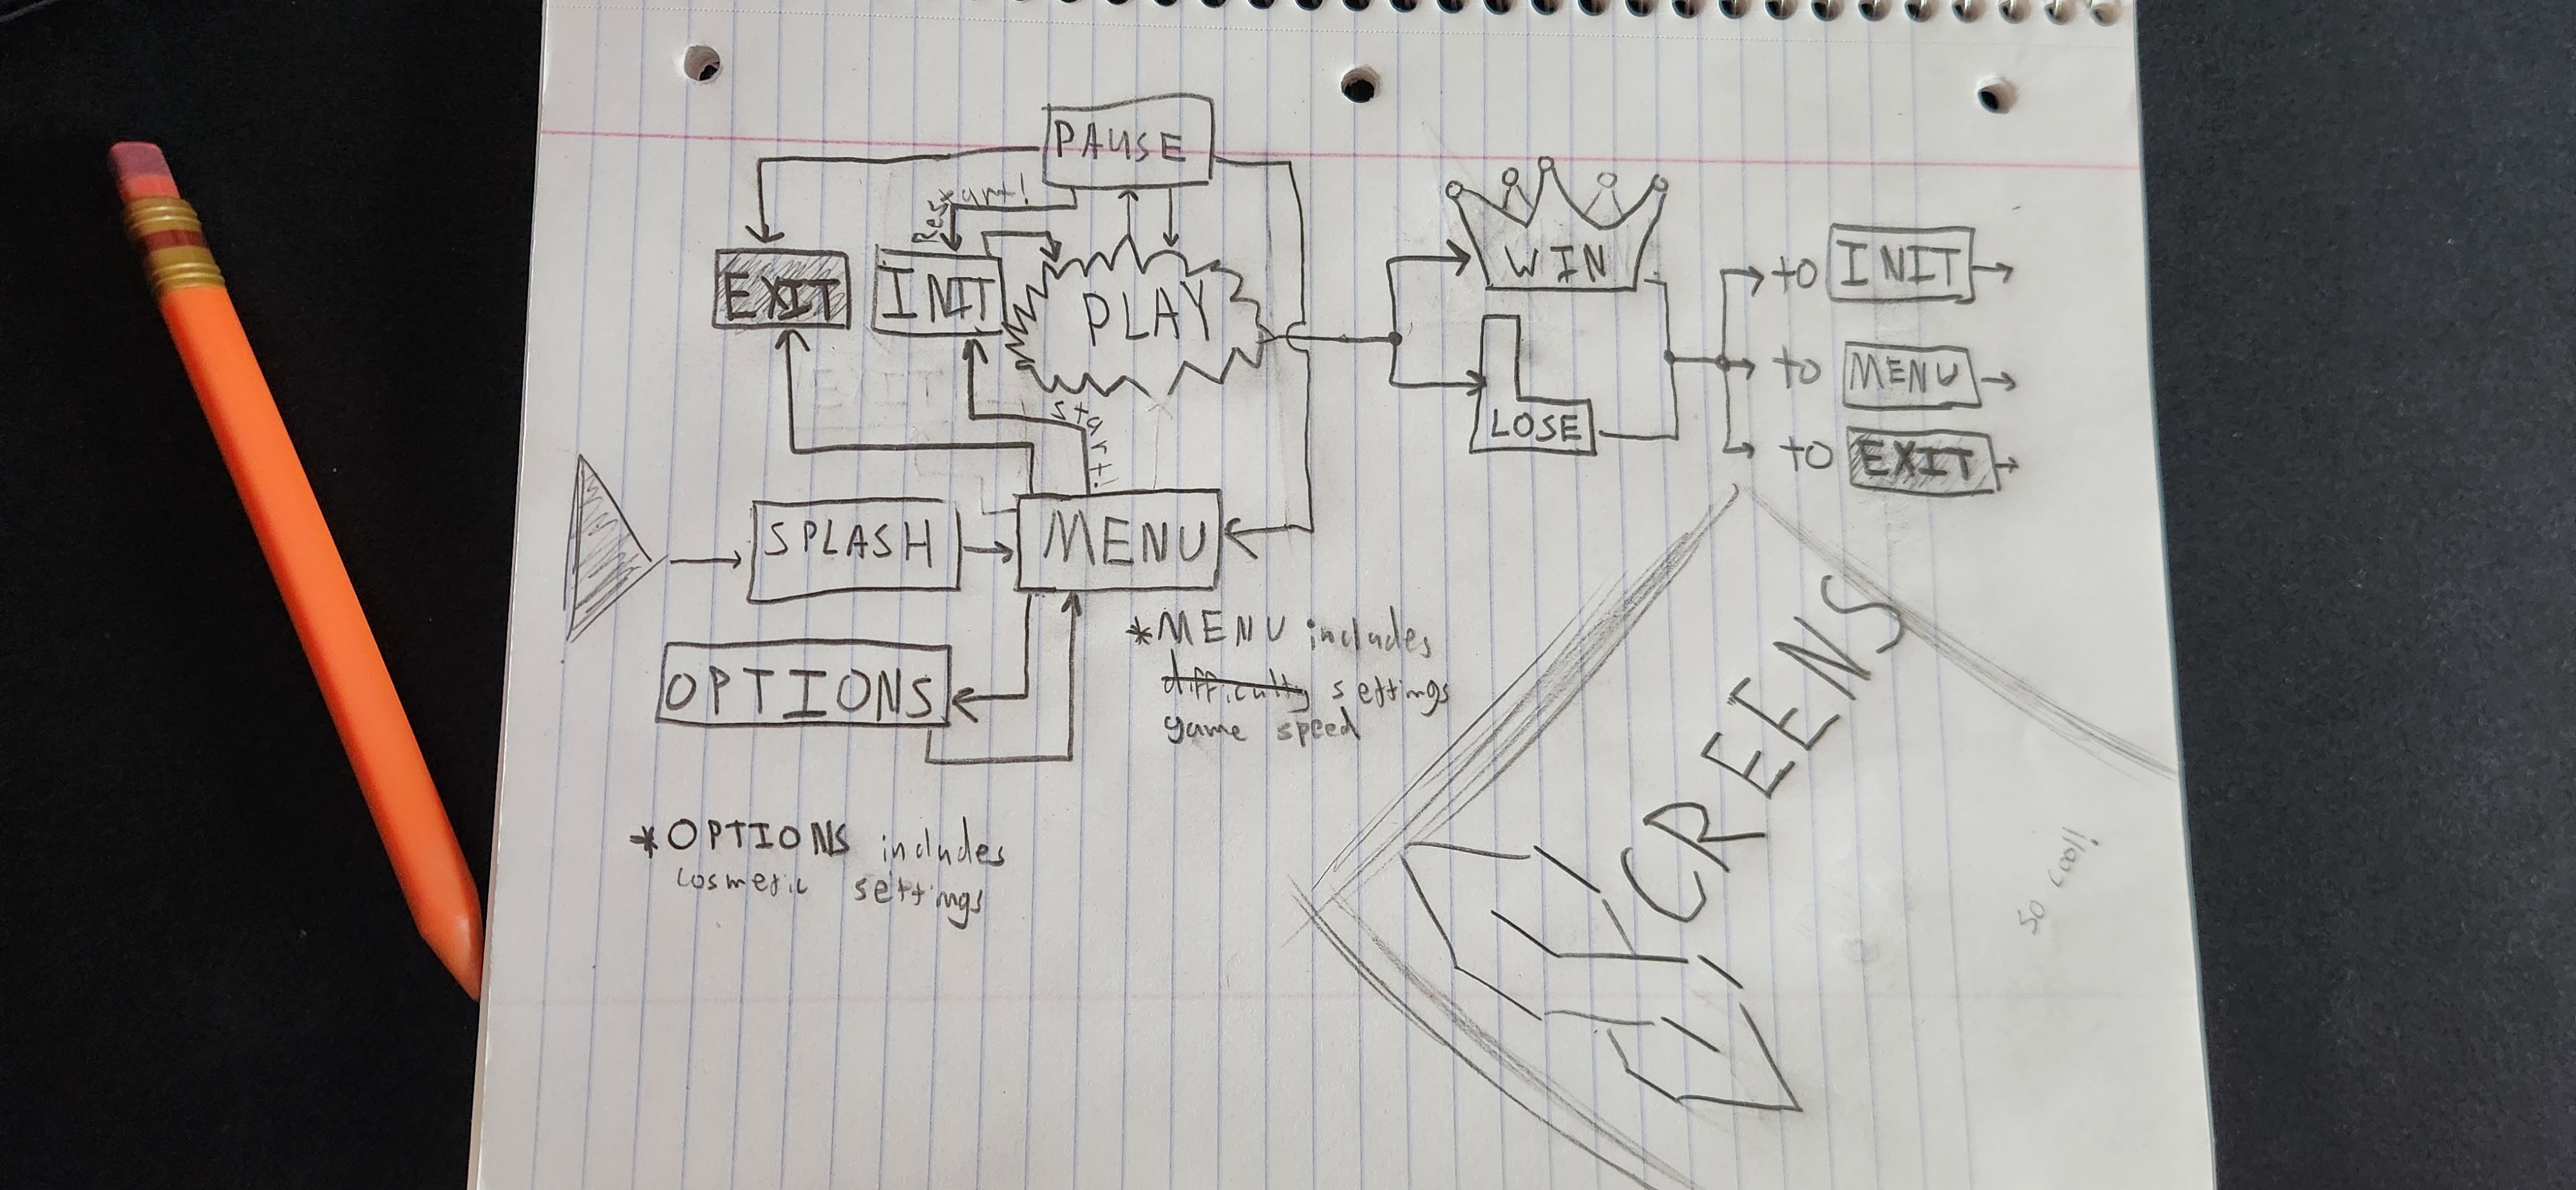 PAUSE
Restart!
EXIT
INIT
PLAY
WIN
LOSE
to INIT
to MENU
to EXIT
EXIT
Start!
SPLASH
MENU
OPTIONS
*MENU includes
difficulty settings
game speed
*OPTIONS includes
cosmetic settings
SCREENS
so cool!